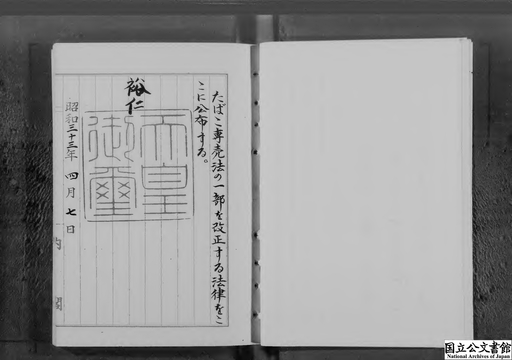 たばこ専売法の一部を改正する法律をこ
こに公布する。
裕仁
天皇
御璽
昭和三十三年 四月 七日
内閣
国立公文書館
National Archives of Japan